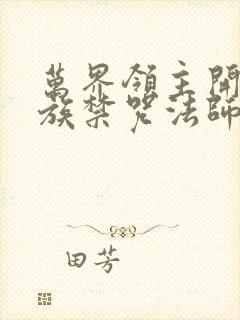 萬界領主開
族禁咒法師
田芳